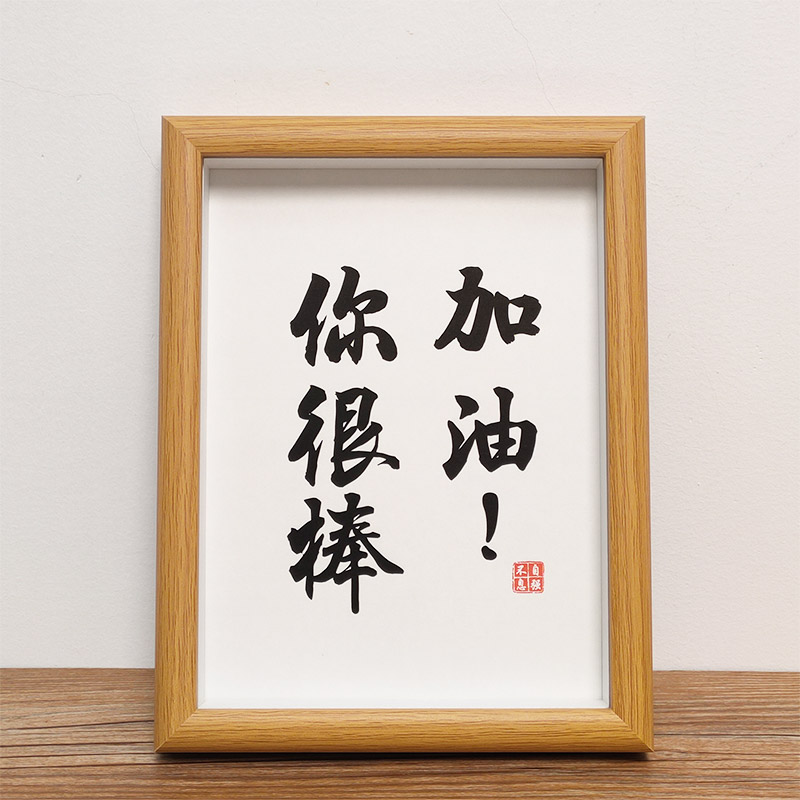 加油！
你很棒
自强
不息